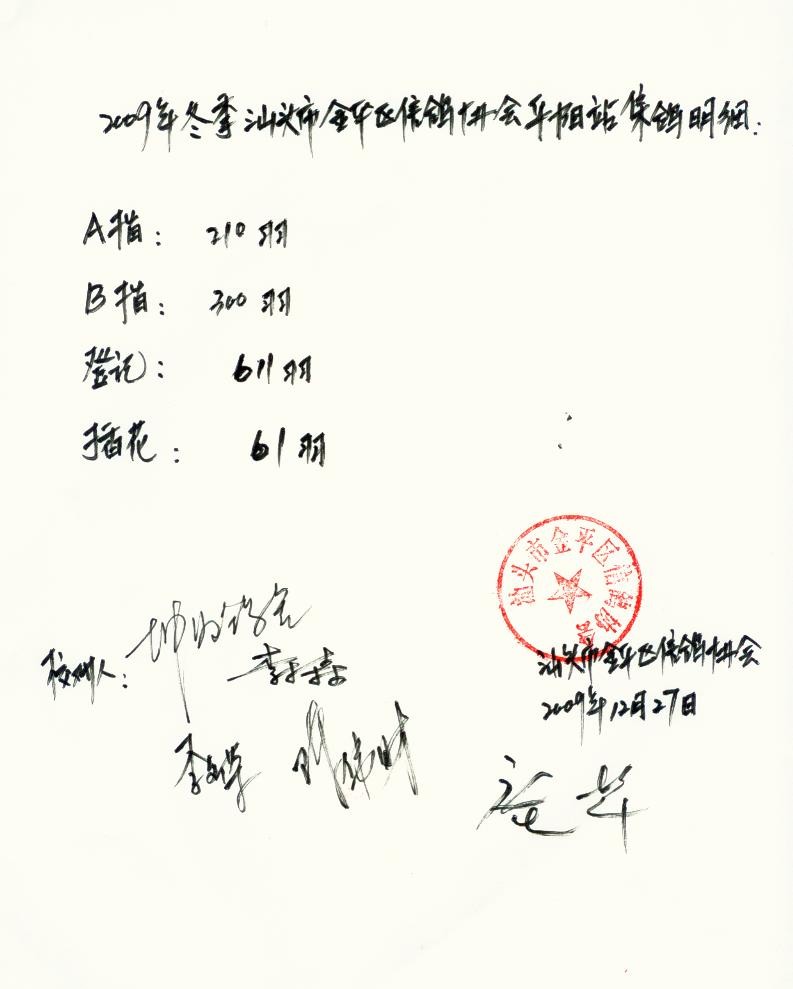 2009年冬季汕头市金平区信鸽协会平阳站集鸽明细:
A指: 210羽
B指: 300羽
登记: 611羽
插花: 61羽
汕头市金平区信鸽协会
校对人:
汕头市金平区信鸽协会
2009年12月27日